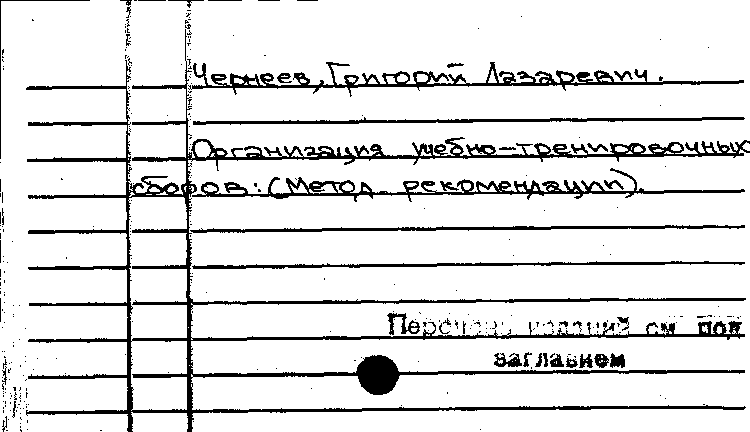 Чернеев, Григорий Лазаревич.
Организация учебно-тренировочных
сборов: (Метод. рекомендации).
Перечень изданий см. под
заглавием